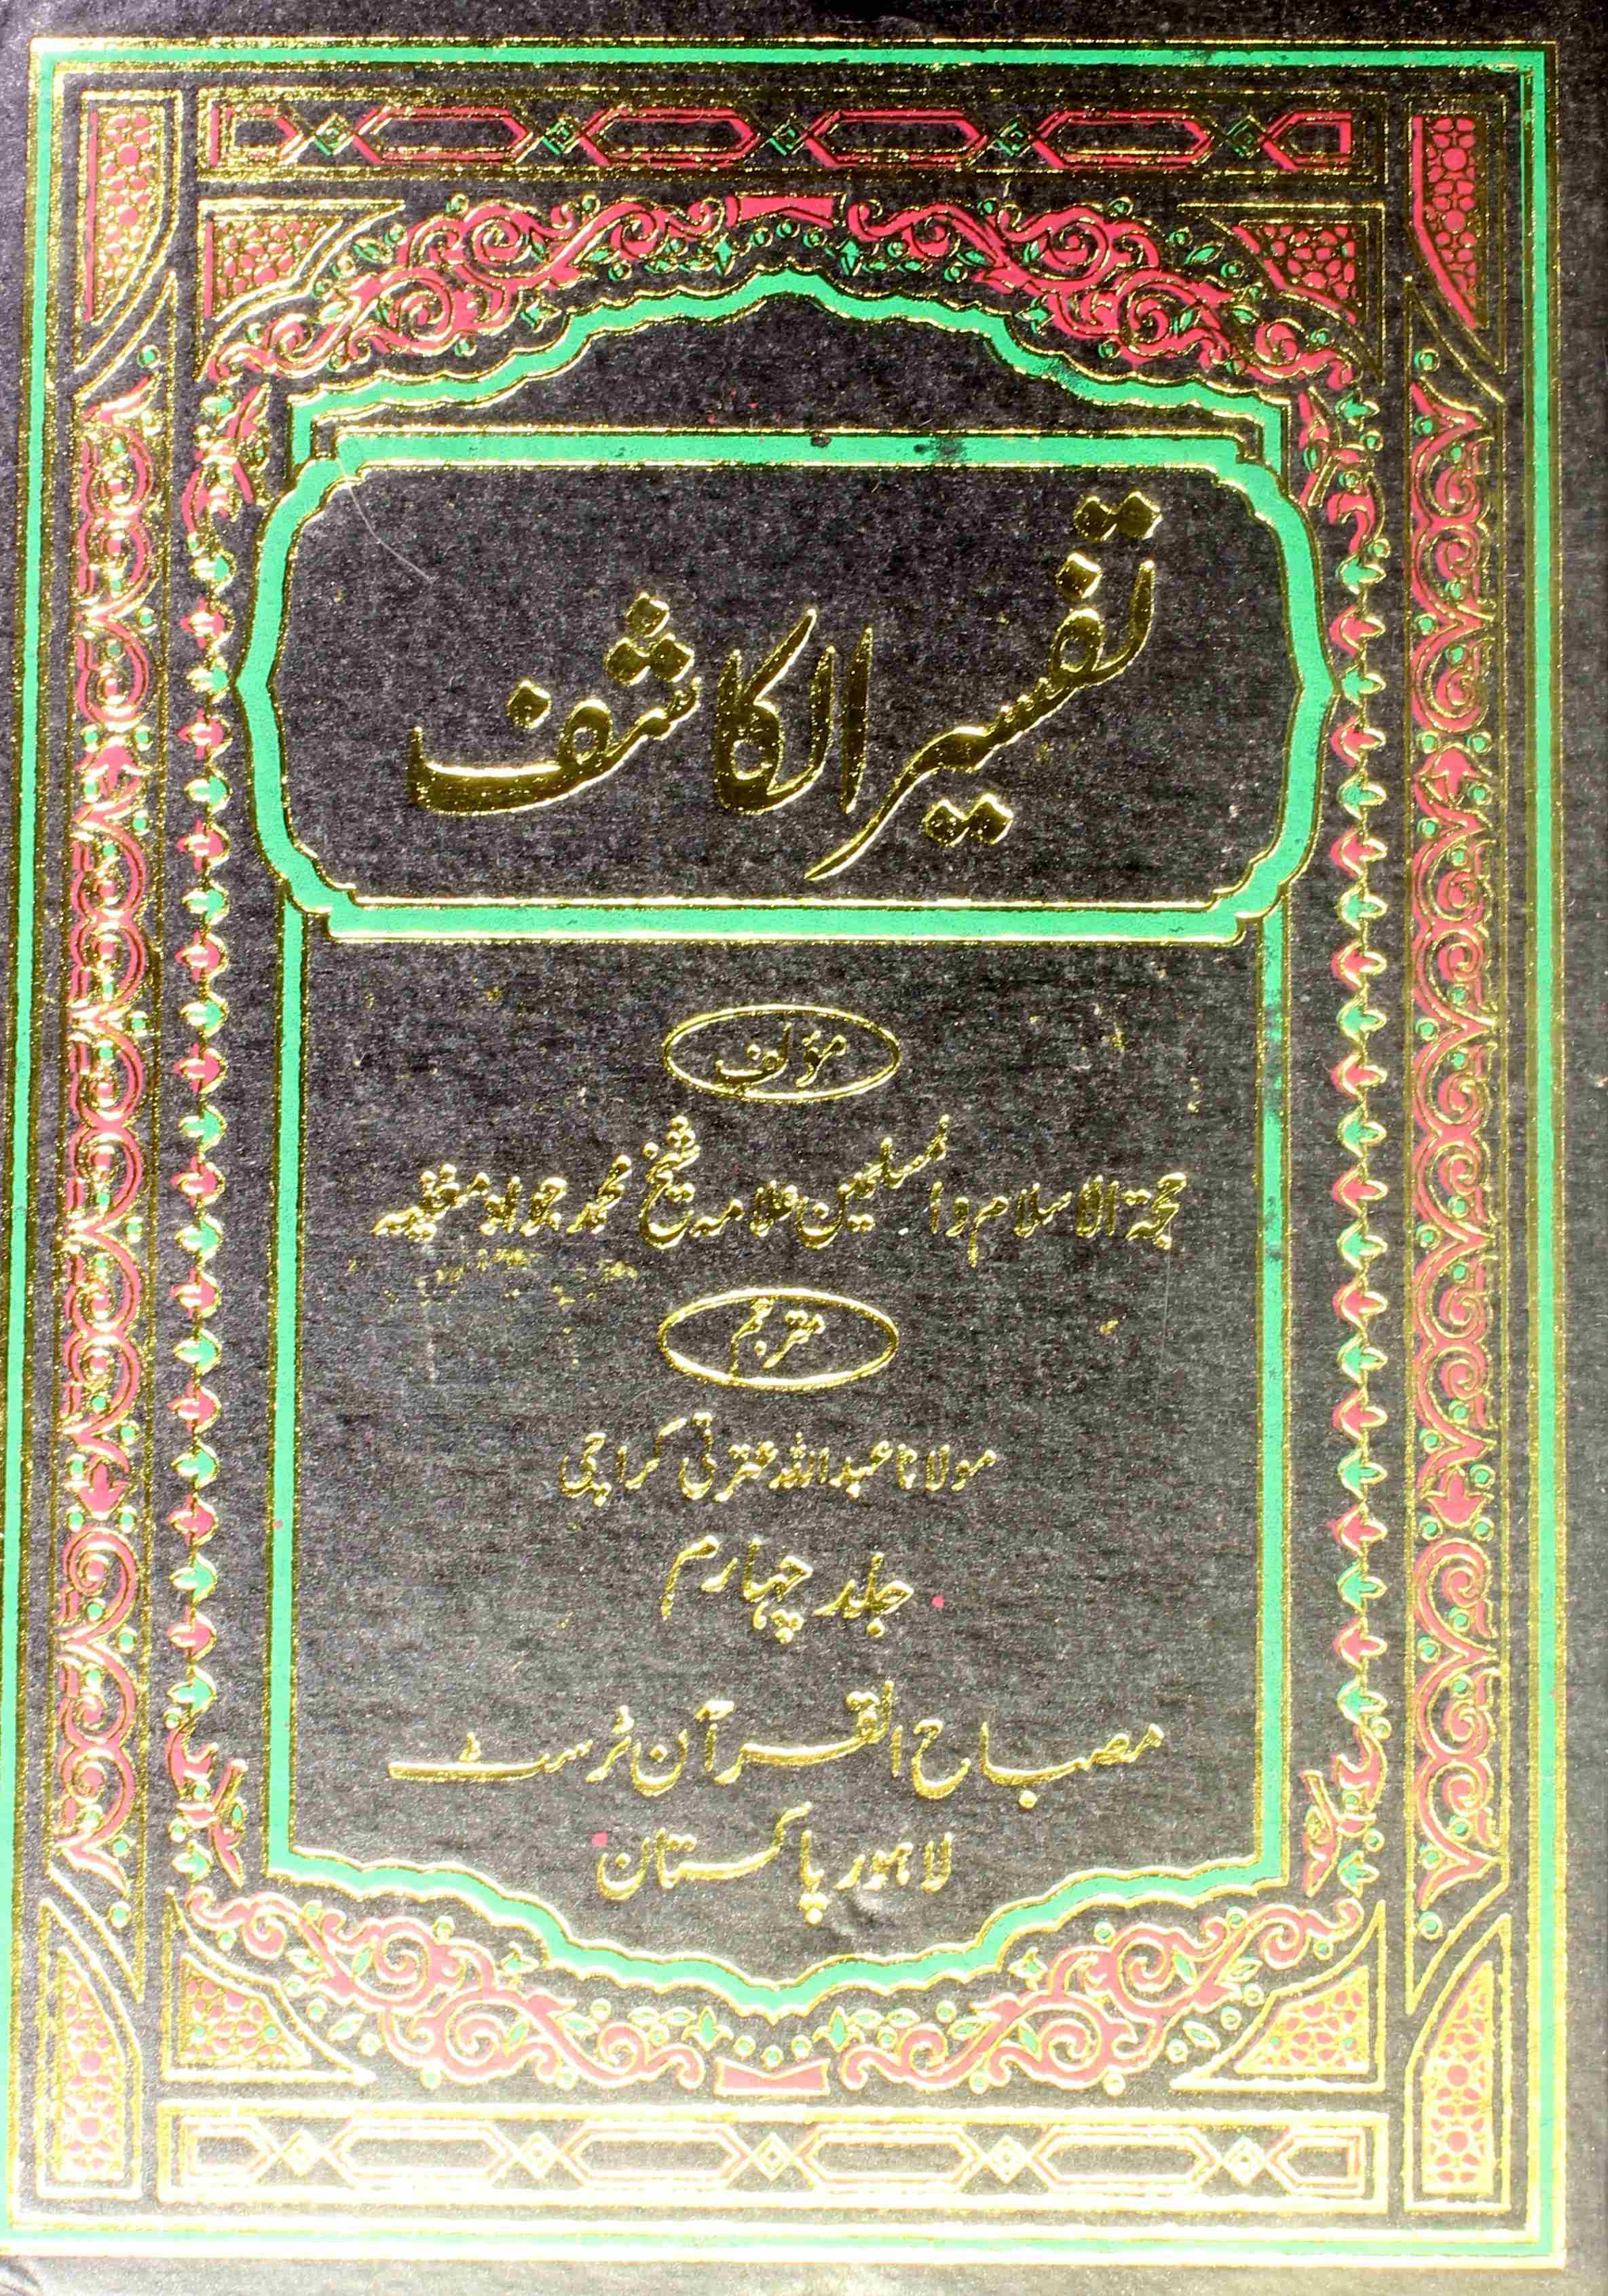 تفسیر الکاشف
مؤلف
حجۃ الاسلام و المسلمین علامہ شیخ محمد جواد مغنیہ
مترجم
مولانا عبداللہ عترتی کراچی
جلد چہارم
مصباح القرآن ٹرسٹ
لاہور پاکستان